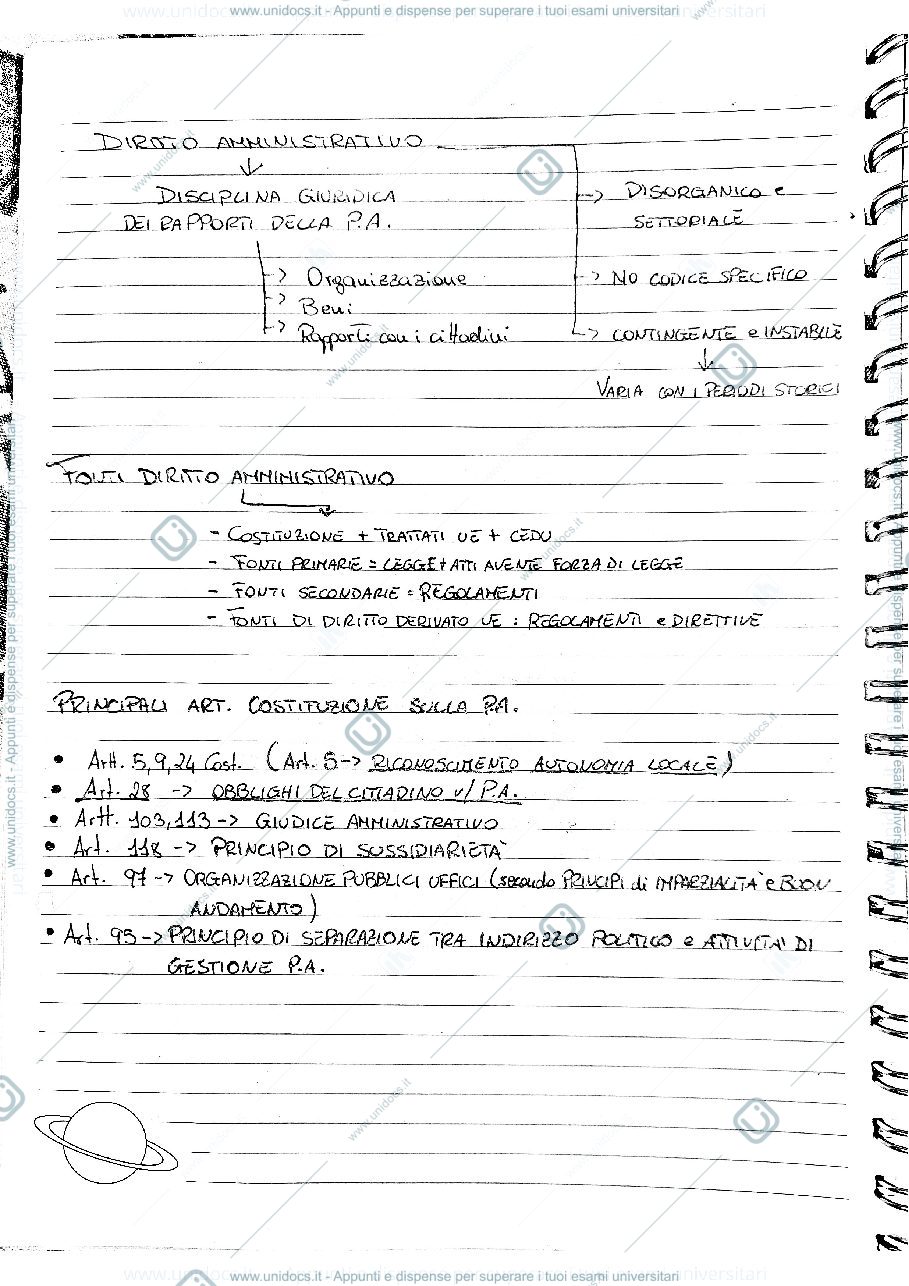 www.unidocs.it - Appunti e dispense per superare i tuoi esami universitari
DIRITTO AMMINISTRATIVO
DISCIPLINA GIURIDICA
DEI RAPPORTI DELLA P.A.
-> Organizzazione
-> Beni
-> Rapporti con i cittadini
-> DISORGANICO e
SETTORIALE
-> NO CODICE SPECIFICO
-> CONTINGENTE e INSTABILE
VARIA CON I PERIODI STORICI
FONTI DIRITTO AMMINISTRATIVO
- COSTITUZIONE + TRATTATI UE + CEDU
- FONTI PRIMARIE = LEGGE + ATTI AVENTE FORZA DI LEGGE
- FONTI SECONDARIE = REGOLAMENTI
- FONTI DI DIRITTO DERIVATO UE : REGOLAMENTI e DIRETTIVE
PRINCIPALI ART. COSTITUZIONE SULLA P.A.
• Artt. 5,9,24 Cost. (Art. 5 -> RICONOSCIMENTO AUTONOMIA LOCALE)
• Art. 28 -> OBBLIGHI DEL CITTADINO v/ P.A.
• Artt. 103,113 -> GIUDICE AMMINISTRATIVO
• Art. 118 -> PRINCIPIO DI SUSSIDIARIETA'
• Art. 97 -> ORGANIZZAZIONE PUBBLICI UFFICI (secondo PRINCIPI di IMPARZIALITA' e BUON
ANDAMENTO)
• Art. 95 -> PRINCIPIO DI SEPARAZIONE TRA INDIRIZZO POLITICO e ATTIVITA' DI
GESTIONE P.A.
www.unidocs.it - Appunti e dispense per superare i tuoi esami universitari